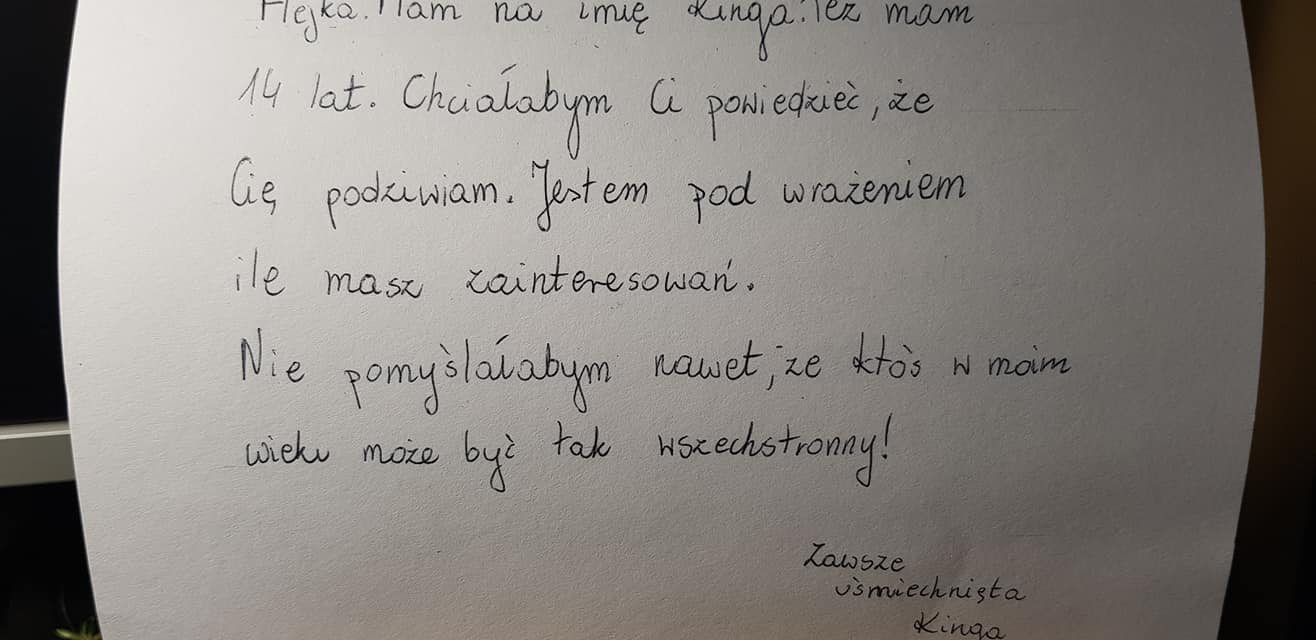 Hejka. Mam na imię Kinga. Też mam
14 lat. Chciałabym Ci powiedzieć, że
Cię podziwiam. Jestem pod wrażeniem
ile masz zainteresowań.
Nie pomyślałabym nawet, że ktoś w moim
wieku może być tak wszechstronny!
Zawsze
uśmiechnięta
Kinga